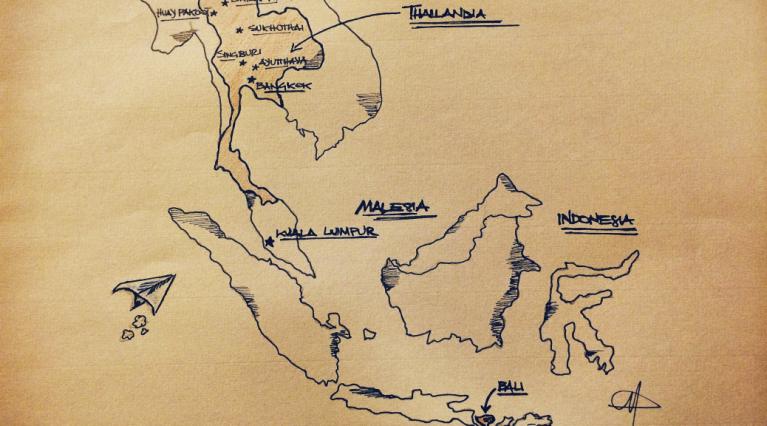 HUAY PAKOOT
THAILANDIA
SUKHOTHAI
SINGBURI
AYUTTHAYA
BANGKOK
MALESIA
INDONESIA
KUALA LUMPUR
BALI